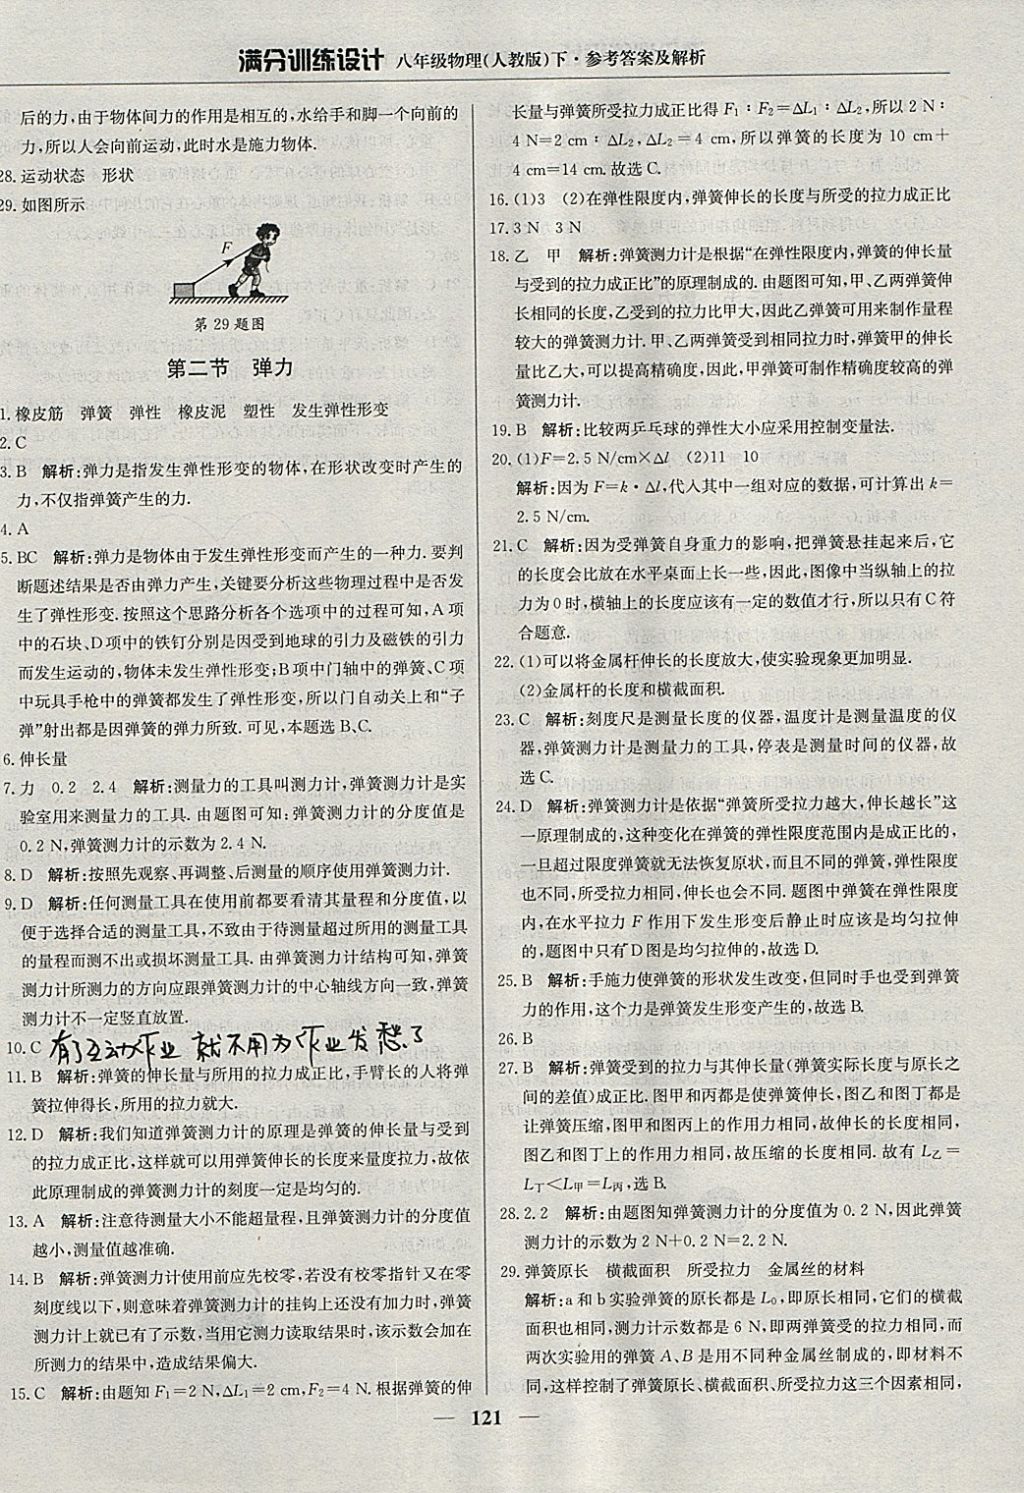 满分训练设计 八年级物理(人教版)下·参考答案及解析
后的力,由于物体间力的作用是相互的,水给手和脚一个向前的
力,所以人会向前运动,此时水是施力物体.
28. 运动状态 形状
29. 如图所示
F
第 29 题图
第二节 弹力
1. 橡皮筋 弹簧 弹性 橡皮泥 塑性 发生弹性形变
2. C
3. B 解析:弹力是指发生弹性形变的物体,在形状改变时产生的
力,不仅指弹簧产生的力.
4. A
5. BC 解析:弹力是物体由于发生弹性形变而产生的一种力. 要判
断题述结果是否由弹力产生,关键要分析这些物理过程中是否发
生了弹性形变. 按照这个思路分析各个选项中的过程可知,A 项
中的石块、D 项中的铁钉分别是因受到地球的引力及磁铁的引力
而发生运动的,物体未发生弹性形变;B 项中门轴中的弹簧、C 项
中玩具手枪中的弹簧都发生了弹性形变,所以门自动关上和“子
弹”射出都是因弹簧的弹力所致. 可见,本题选 B、C.
6. 伸长量
7. 力 0.2 2.4 解析:测量力的工具叫测力计,弹簧测力计是实
验室用来测量力的工具. 由题图可知:弹簧测力计的分度值是
0.2 N,弹簧测力计的示数为 2.4 N.
8. D 解析:按照先观察、再调整、后测量的顺序使用弹簧测力计.
9. D 解析:任何测量工具在使用前都要看清其量程和分度值,以
便于选择合适的测量工具,不致由于待测量超过所用的测量工具
的量程而测不出或损坏测量工具. 由弹簧测力计结构可知,弹簧
测力计所测力的方向应跟弹簧测力计的中心轴线方向一致,弹簧
测力计不一定竖直放置.
10. C 有了互动作业 就不用为作业发愁了
11. B 解析:弹簧的伸长量与所用的拉力成正比,手臂长的人将弹
簧拉伸得长,所用的拉力就大.
12. D 解析:我们知道弹簧测力计的原理是弹簧的伸长量与受到
的拉力成正比,这样就可以用弹簧伸长的长度来量度拉力,故依
此原理制成的弹簧测力计的刻度一定是均匀的.
13. A 解析:注意待测量大小不能超量程,且弹簧测力计的分度值
越小,测量值越准确.
14. B 解析:弹簧测力计使用前应先校零,若没有校零指针又在零
刻度线以下,则意味着弹簧测力计的挂钩上还没有加力时,弹簧
测力计上就已有了示数,当用它测力读取结果时,该示数会加在
所测力的结果中,造成结果偏大.
15. C 解析:由题知 F₁=2 N,ΔL₁=2 cm,F₂=4 N. 根据弹簧的伸
长量与弹簧所受拉力成正比得 F₁∶F₂=ΔL₁∶ΔL₂,所以 2 N∶
4 N=2 cm∶ΔL₂,ΔL₂=4 cm,所以弹簧的长度为 10 cm+
4 cm=14 cm. 故选 C.
16. (1)3 (2)在弹性限度内,弹簧伸长的长度与所受的拉力成正比
17. 3 N 3 N
18. 乙 甲 解析:弹簧测力计是根据“在弹性限度内,弹簧的伸长量
与受到的拉力成正比”的原理制成的. 由题图可知,甲、乙两弹簧伸
长相同的长度,乙受到的拉力比甲大,因此乙弹簧可用来制作量程
较大的弹簧测力计. 甲、乙两弹簧受到相同拉力时,弹簧甲的伸长
量比乙大,可以提高精确度,因此,甲弹簧可制作精确度较高的弹
簧测力计.
19. B 解析:比较两乒乓球的弹性大小应采用控制变量法.
20. (1)F=2.5 N/cm×Δl (2)11 10
解析:因为 F=k·Δl,代入其中一组对应的数据,可计算出 k=
2.5 N/cm.
21. C 解析:因为受弹簧自身重力的影响,把弹簧悬挂起来后,它
的长度会比放在水平桌面上长一些,因此,图像中当纵轴上的拉
力为 0 时,横轴上的长度应该有一定的数值才行,所以只有 C 符
合题意.
22. (1)可以将金属杆伸长的长度放大,使实验现象更加明显.
(2)金属杆的长度和横截面积.
23. C 解析:刻度尺是测量长度的仪器,温度计是测量温度的仪
器,弹簧测力计是测量力的工具,停表是测量时间的仪器,故
选 C.
24. D 解析:弹簧测力计是依据“弹簧所受拉力越大,伸长越长”这
一原理制成的,这种变化在弹簧的弹性限度范围内是成正比的,
一旦超过限度弹簧就无法恢复原状,而且不同的弹簧,弹性限度
也不同,所受拉力相同,伸长也会不同. 题图中弹簧在弹性限度
内,在水平拉力 F 作用下发生形变后静止时应该是均匀拉伸
的,题图中只有 D 图是均匀拉伸的,故选 D.
25. B 解析:手施力使弹簧的形状发生改变,但同时手也受到弹簧
力的作用,这个力是弹簧发生形变产生的,故选 B.
26. B
27. B 解析:弹簧受到的拉力与其伸长量(弹簧实际长度与原长之
间的差值)成正比. 图甲和丙都是使弹簧伸长,图乙和图丁都是
让弹簧压缩,图甲和图丙上的作用力相同,故伸长的长度相同,
图乙和图丁上的作用力相同,故压缩的长度相同. 故有 L乙=
L丁<L甲=L丙,选 B.
28. 2.2 解析:由题图知弹簧测力计的分度值为 0.2 N,因此弹簧
测力计的示数为 2 N+0.2 N=2.2 N.
29. 弹簧原长 横截面积 所受拉力 金属丝的材料
解析:a 和 b 实验弹簧的原长都是 L₀,即原长相同,它们的横截
面积也相同,测力计示数都是 6 N,即两弹簧受的拉力相同,而
两次实验用的弹簧 A、B 是用不同种金属丝制成的,即材料不
同,这样控制了弹簧原长、横截面积、所受拉力这三个因素相同,
— 121 —